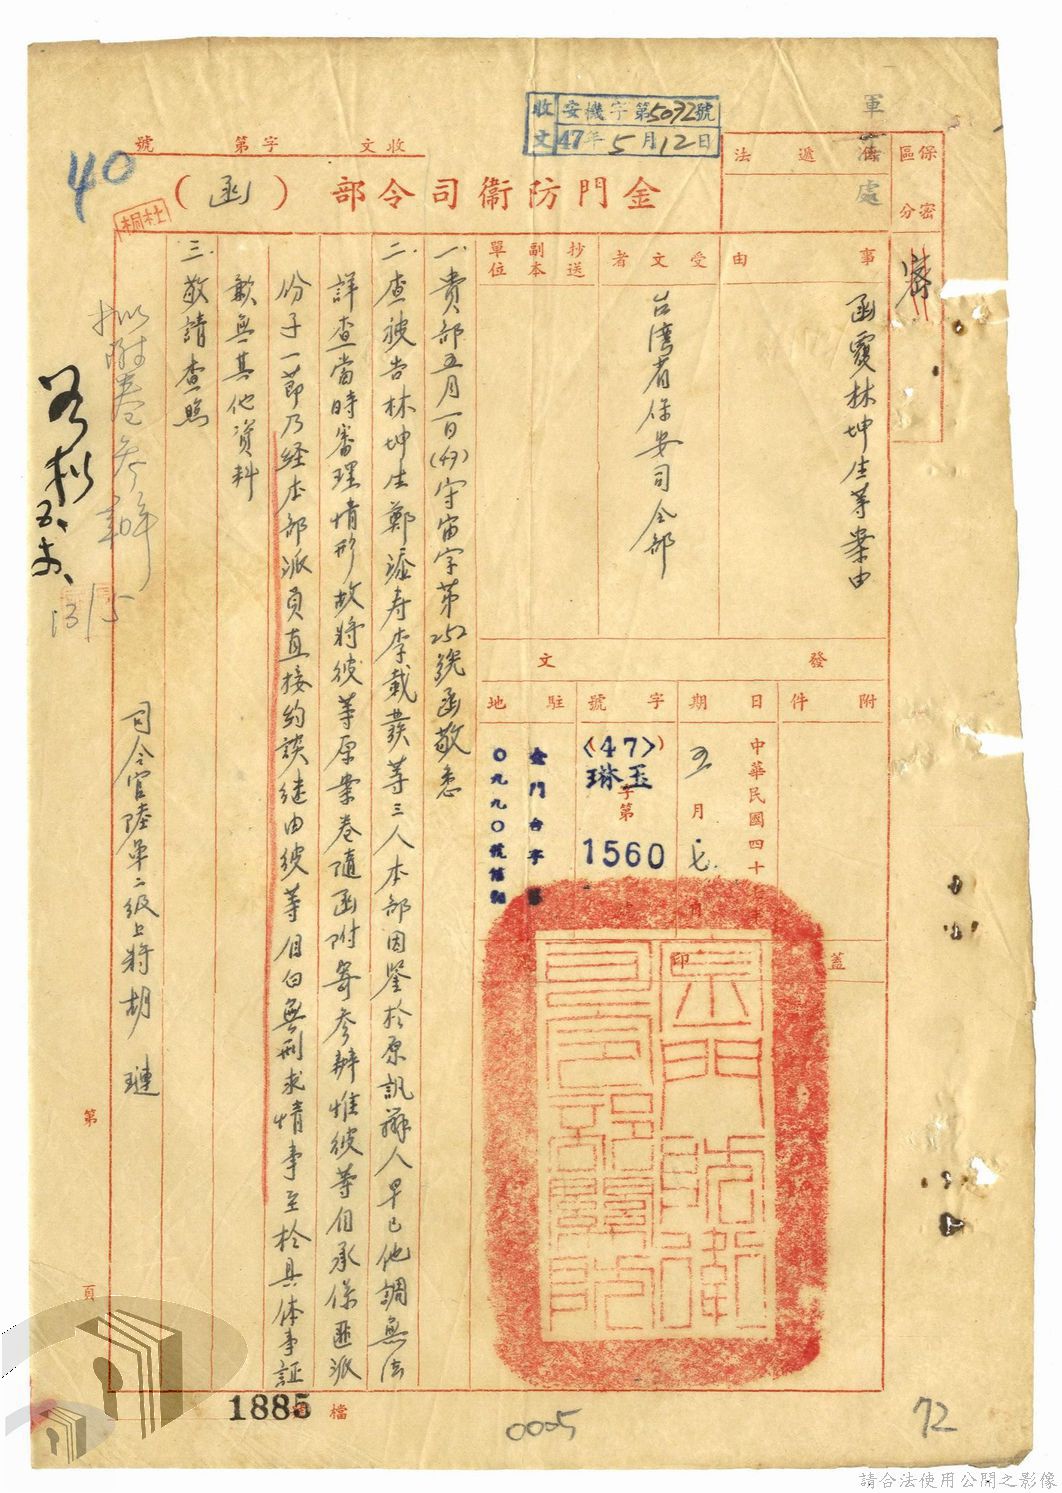 收文 安機字第5072號
47年5月12日
收文 字第 號
40
金門防衛司令部（函）
杜桐
軍法處
保密區分
傳遞法
事由
函覆林坤生等案由
受文者
台灣省保安司令部
抄送副本單位
發文
附件
日期
中華民國四十
五月七
字號
(47)
琳玉
字第
1560
駐地
金門台字第
〇九九〇號信箱
蓋印
一、貴部五月一日(47)守宙字第252號函敬悉
二、查被告林坤生鄭添寿李載發等三人本部因鑒於原訊辦人早已他調無法
詳查當時審理情形故將彼等原案卷隨函附寄參辦惟彼等自承係匪派
份子一節乃経本部派員直接約談継由彼等自白無刑求情事至於具体事証
歉無其他資料
三、敬請查照
司令官陸軍二級上將胡璉
擬附卷參辦
13/5
第 頁
檔
1885
0005
72
請合法使用公開之影像